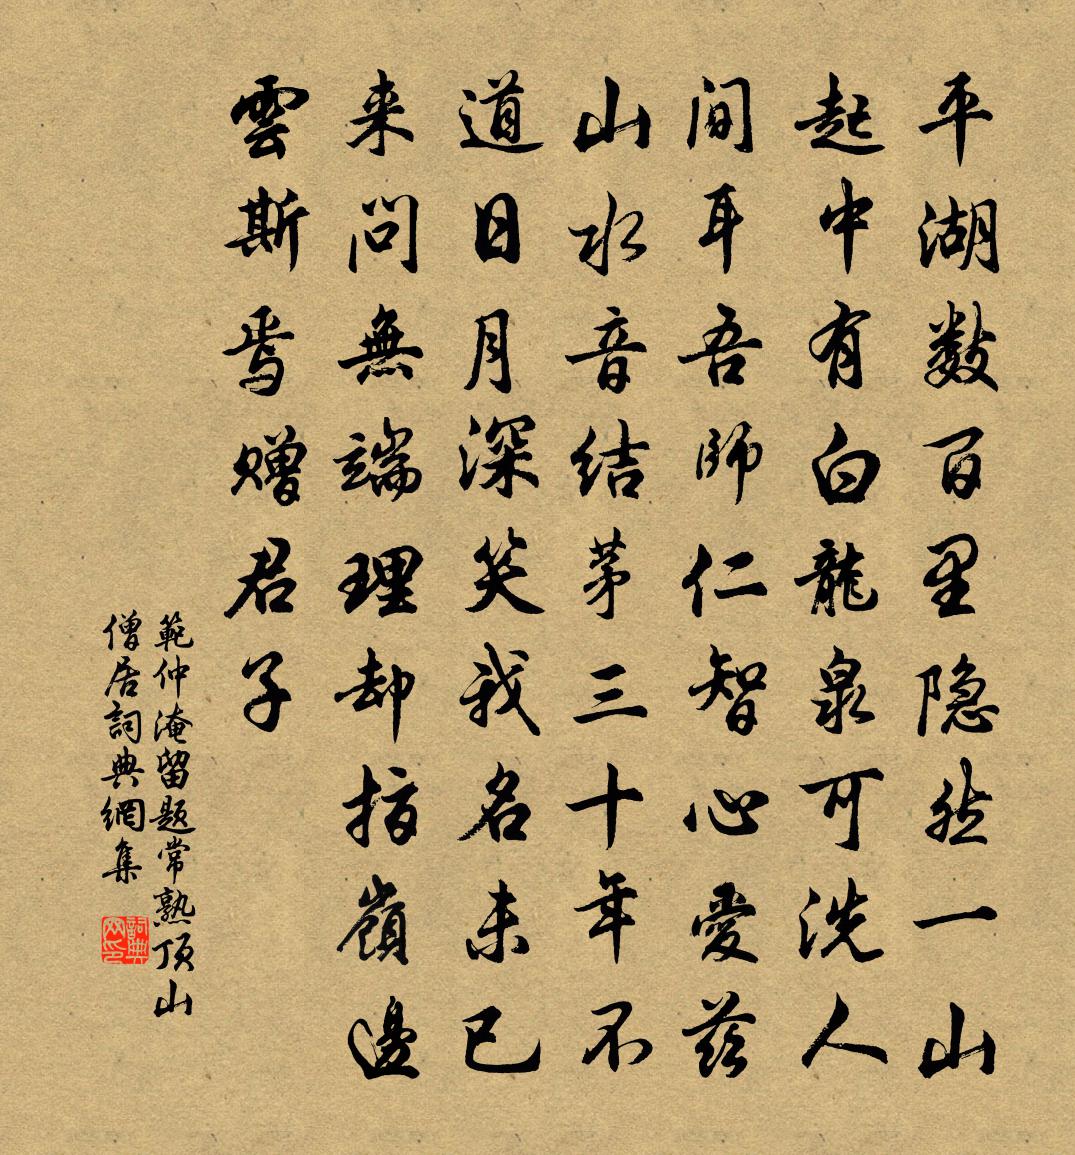 平湖數百里隐然一山
起中有白龍泉可洗人
间耳吾師仁智心愛兹
山水音结茅三十年不
道日月深笑我名未已
来問無端理却指嶺邊
雲斯焉赠君子
範仲淹留题常熟顶山
僧居詞典網集
詞典网印